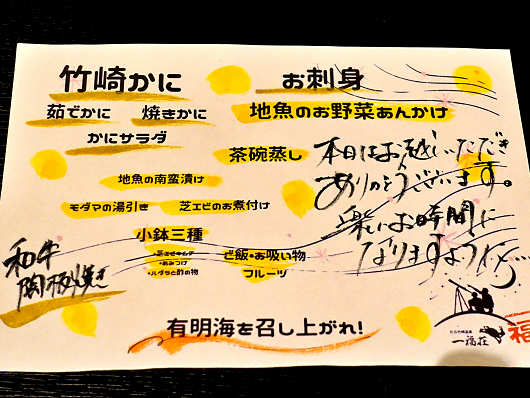 竹崎かに
茹でかに 焼きかに
かにサラダ
地魚の南蛮漬け
モダマの湯引き 芝エビのお煮付け
小鉢三種
・芝エビキムチ
・あみつけ
・ハダラと酢の物
和牛
陶板焼き
お刺身
地魚のお野菜あんかけ
茶碗蒸し
ご飯・お吸い物
フルーツ
本日はお越しいただき
ありがとうございます。
楽しいお時間に
なりますように
有明海を召し上がれ!
一福荘
福